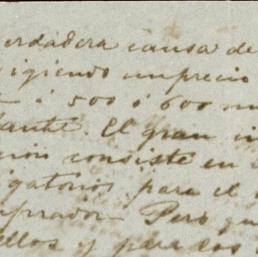 erdadera causa de
igiendo un precio
ó 500 ó 600 m
lante. El gran i
cion consiste en
igatorios para el
prador. Pero qu
ellos y para los